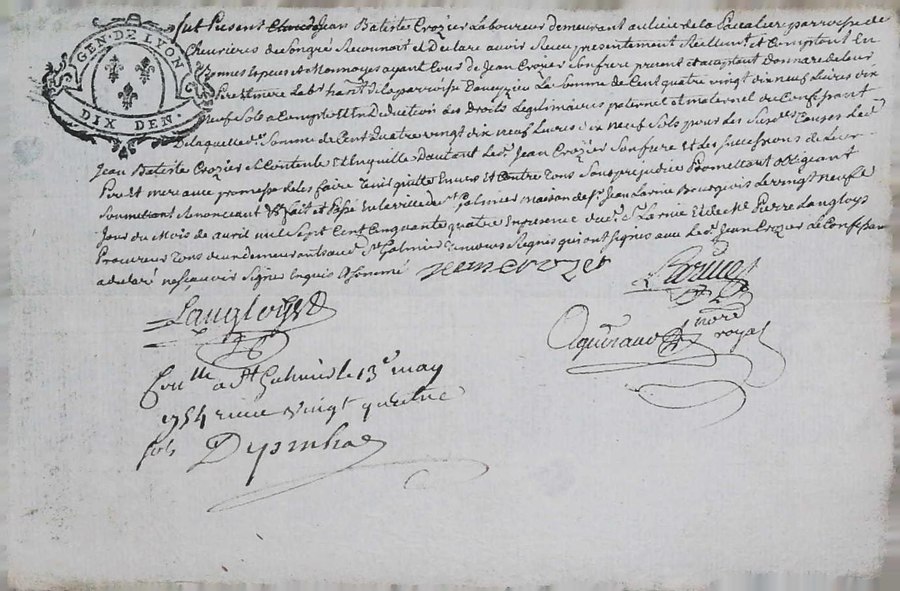 GEN. DE LYON
DIX DEN.
fut Present Claude Jean Batiste Crozier Laboureur Demeurant au lieu de la parroisse de
Chevrieres de Son gré Reconnait et Declare avoir Receu presentement Reellem.t et Comptant En
Bonnes Especes et Monnoyes ayant Cours de Jean Crozier Son frere present et acceptant Donnare de leur
Pere et mere Le d.t hant de la parroisse D'aveyzieu La Somme de Cent quatre vingt dix neuf Livres dix
Neuf Sols a Compte Et En Deduction des Droits Legitimaires paternel et maternel du Confessant
De laquelle d. Somme de Cent Quatre vingt dix neuf Livres dix neuf Sols pour les Susd. Causes Led.
Jean Batiste Crozier Se Contente Et En quitte D'autant Led. Jean Crozier Son frere Et des Successions de leur
Pere Et mere avec promesse de les faire Tenir quitte Envers Et Contre Tous Sans prejudice Promettant obligeant
Soumettant Renonceant &c fait et Passé En la ville de S.t Galmier maison de S.r Jean Larnie Bourgeois Le vingt Neufle
Jour du Mois de avril mil Sept Cent Cinquante quatre En presence du d. S. Larnie Et de Me Pierre Langloys
Procureur Tous deux demeurants aud. S.t Galmier Temoins Signés qui ont Signés avec Led. Jean Crozier Le Confessant
a declaré ne Scavoir Signer Enquis & Sommé
jean crozer
Larnie
Langloys
nore
royal
Con.lle a S.t Galmier le 13.e may
1754 receu vingt quatre
sols